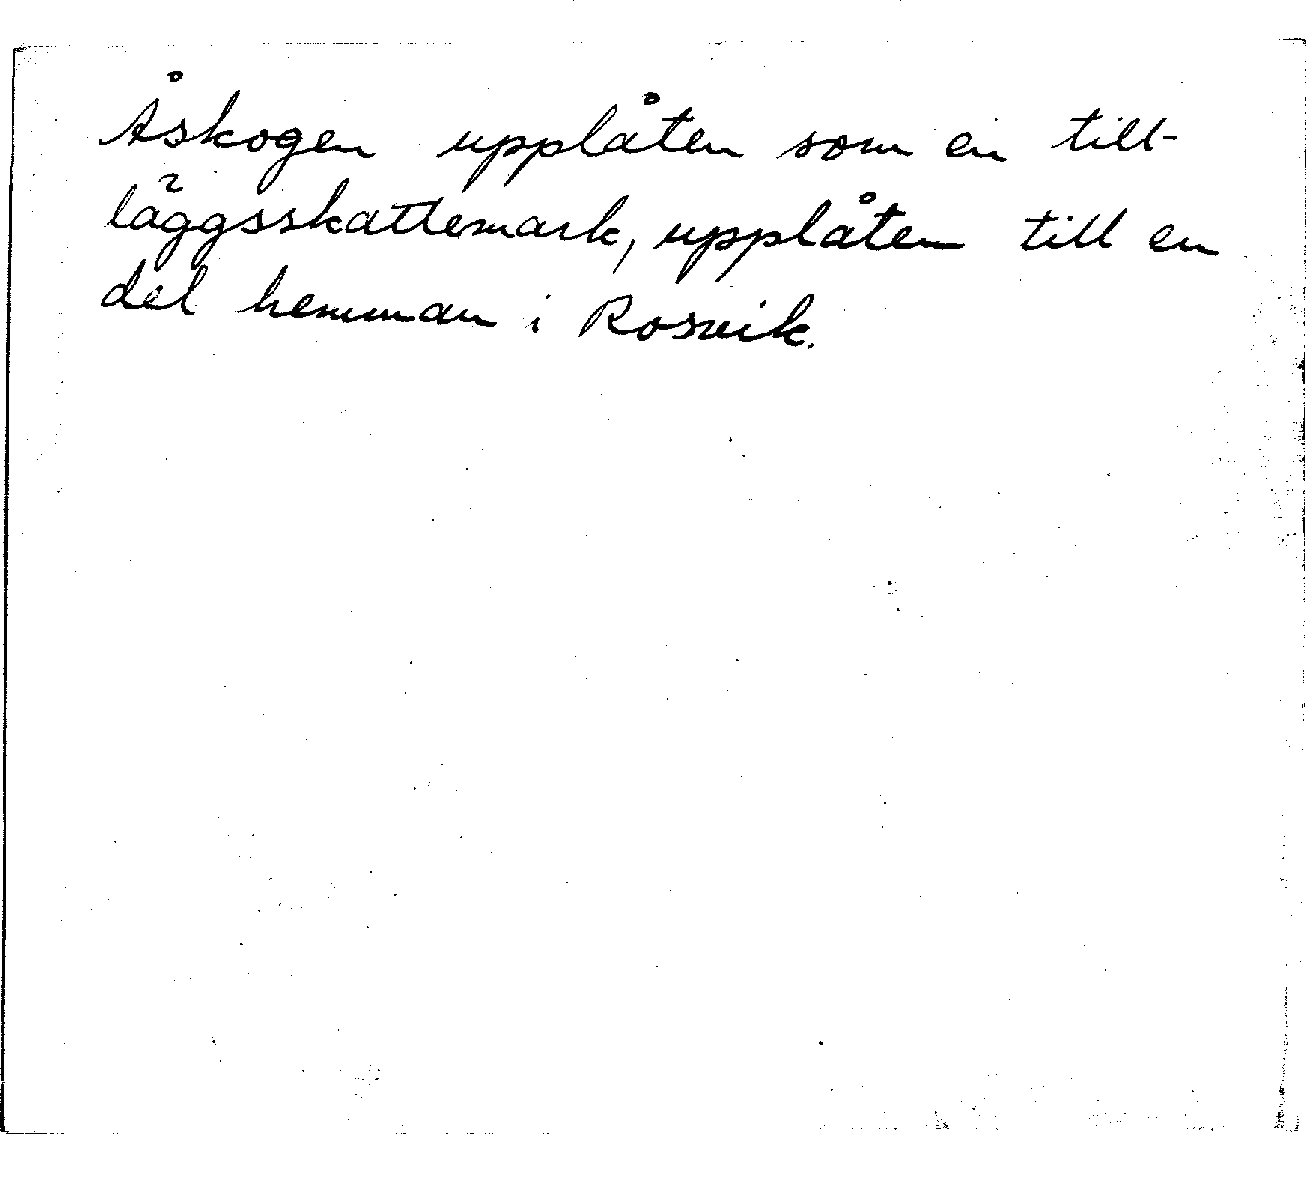 Åskogen upplåten som en till-
läggsskattemark, upplåten till en
del hemman i Rosvik.